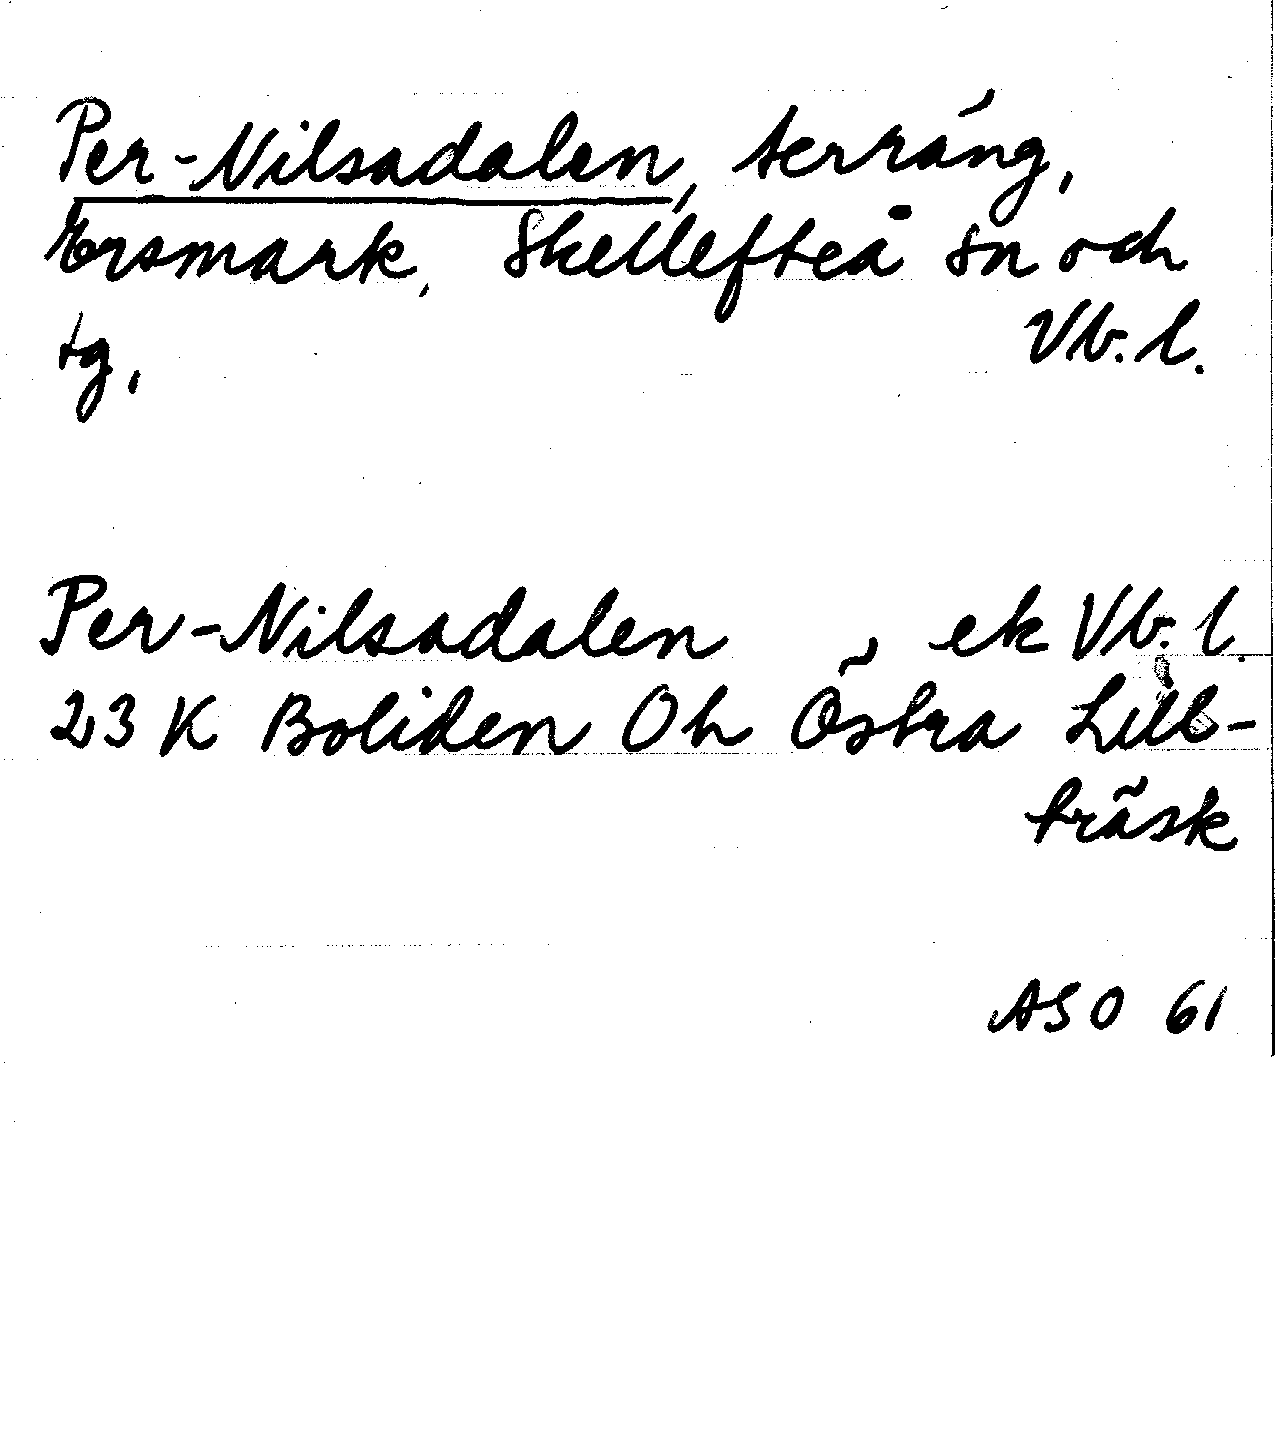 Per-Nilsadalen, terräng,
Ersmark, Skellefteå sn och
tg, Vb. l.
Per-Nilsadalen, ek Vb. l.
23 K Boliden 0h Östra Lill-
träsk
ASO 61